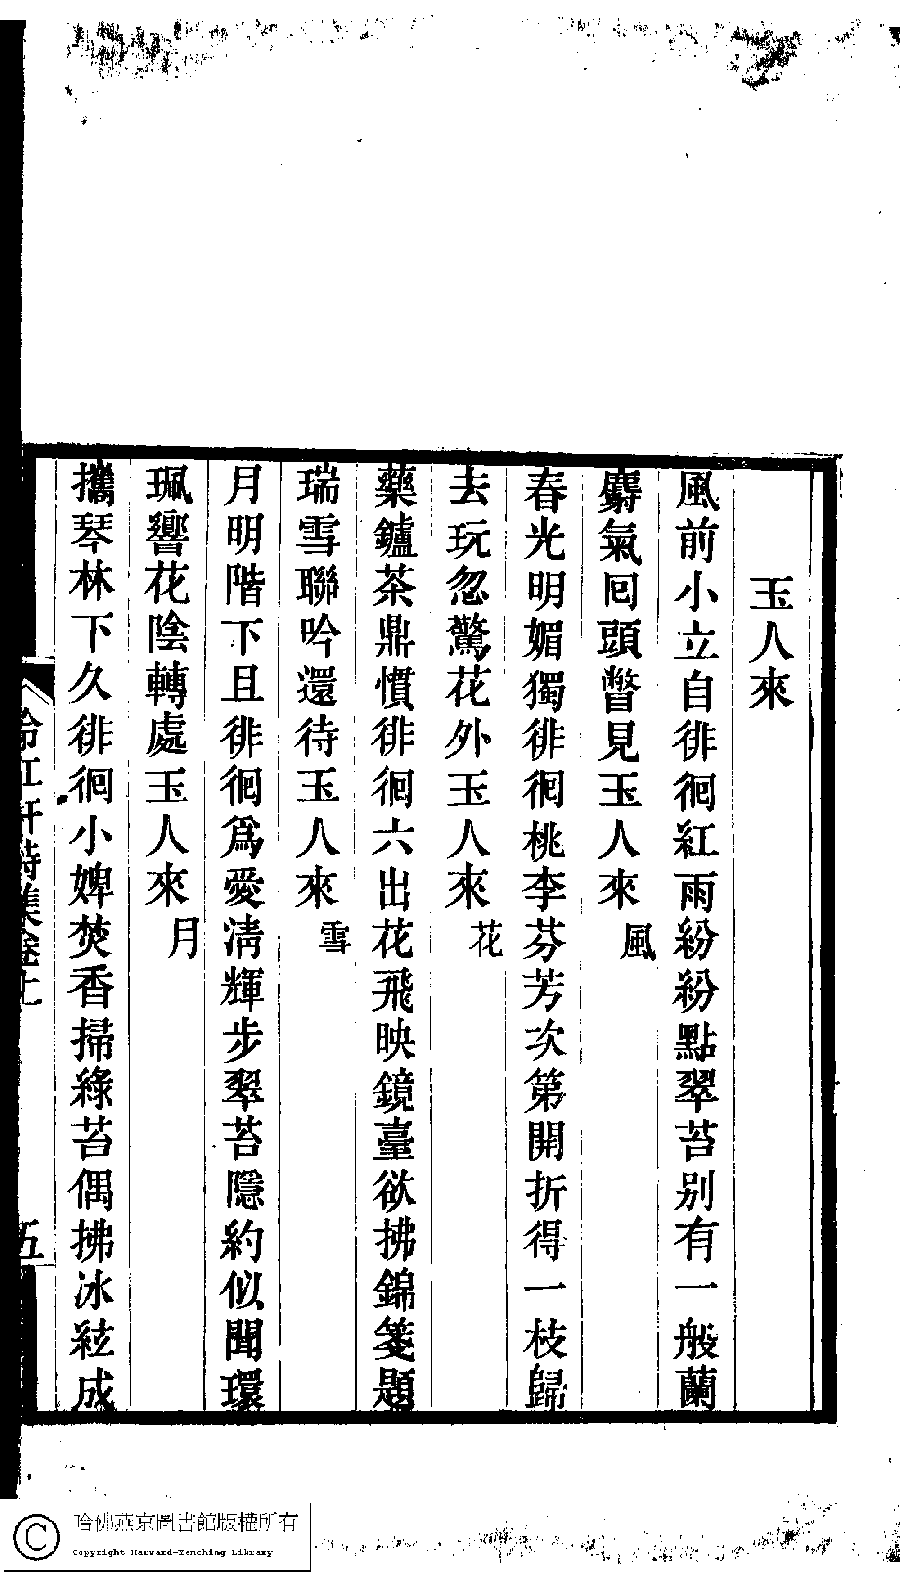 玉人來
風前小立自徘徊紅雨紛紛點翠苔别有一般蘭
麝氣回頭瞥見玉人來風
春光明媚獨徘徊桃李芬芳次第開折得一枝歸
去玩忽驚花外玉人來花
藥鑪茶鼎慣徘徊六出花飛映鏡臺欲拂錦箋題
瑞雪聯吟還待玉人來雪
月明階下且徘徊爲愛清輝步翠苔隱約似聞環
珮響花陰轉處玉人來月
攜琴林下久徘徊小婢焚香掃綠苔偶拂冰絃成
冷紅軒詩集卷上
五
哈佛燕京圖書館版權所有
Copyright Harvard-Yenching Library